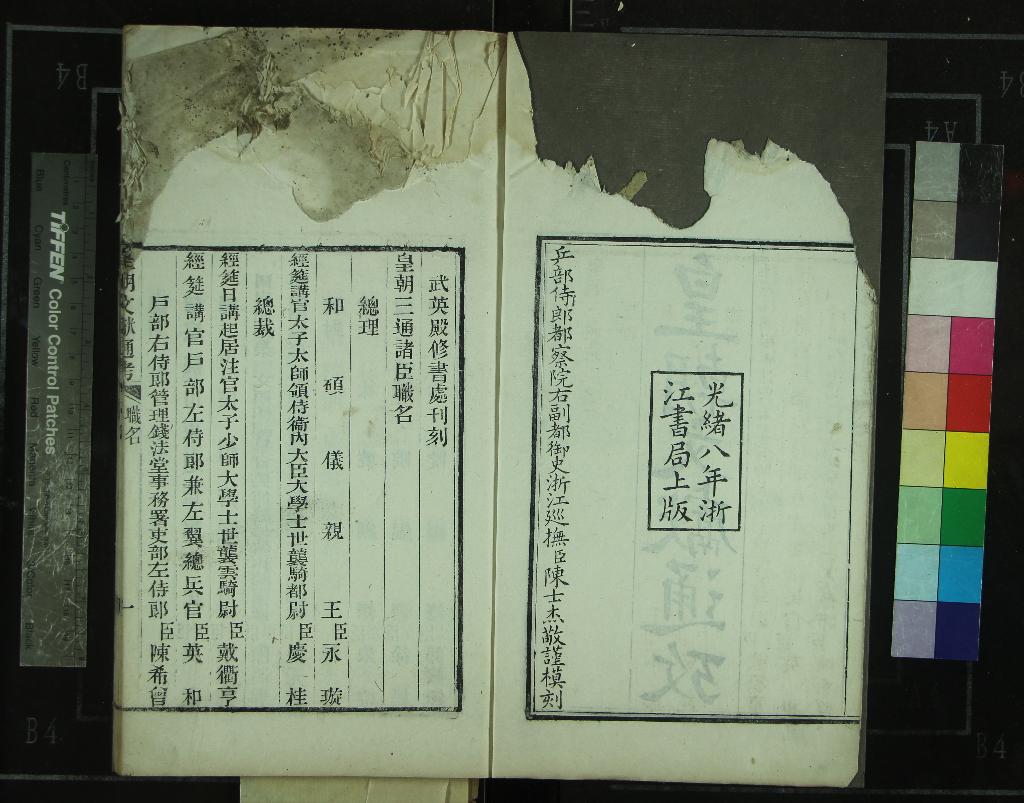 光緒八年浙
江書局上版
兵部侍郎都察院右副都御史浙江巡撫臣陳士杰敬謹模刻
武英殿修書處刊刻
皇朝三通諸臣職名
總理
和碩儀親王臣永璇
經筵講官太子太師領侍衞內大臣大學士世襲騎都尉臣慶桂
總裁
經筵日講起居注官太子少師大學士世襲雲騎尉臣戴衢亨
經筵講官戶部左侍郎兼左翼總兵官臣英和
戶部右侍郎管理錢法堂事務署吏部左侍郎臣陳希曾
皇朝文獻通考
職名
一
TIFFEN Color Control Patches
Blue Cyan Green Yellow Red Magenta Black
B4
A4
B4
B4
B4